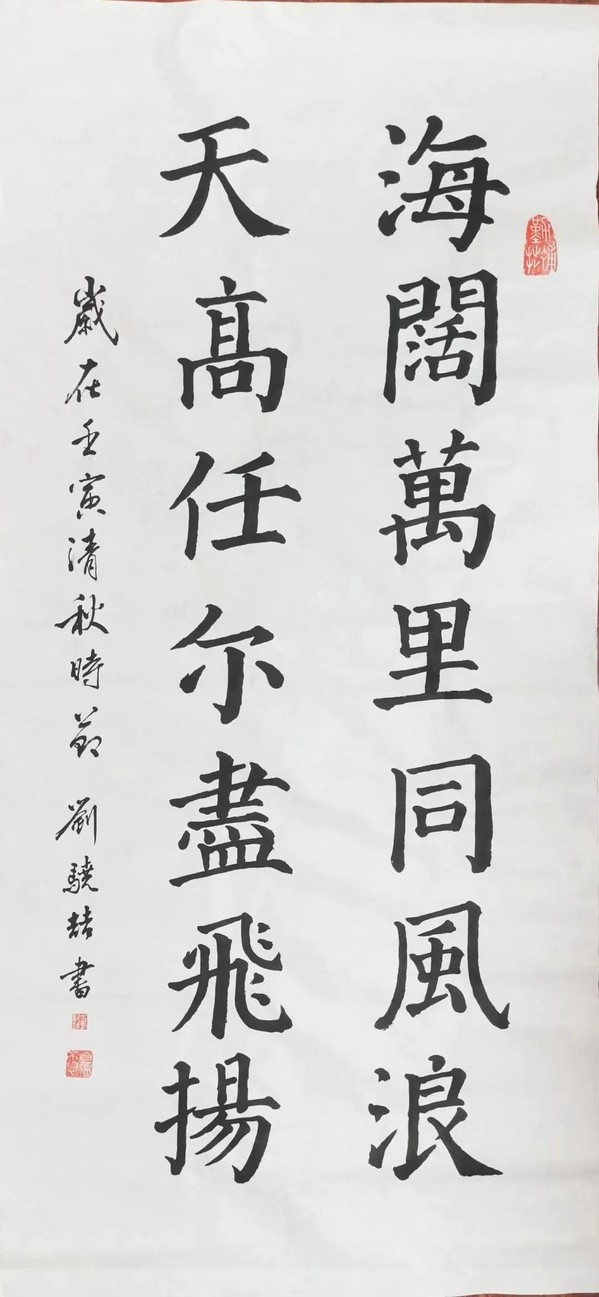 海闊萬里同風浪
天高任尔盡飛揚
歲在壬寅清秋時節 劉驍喆書